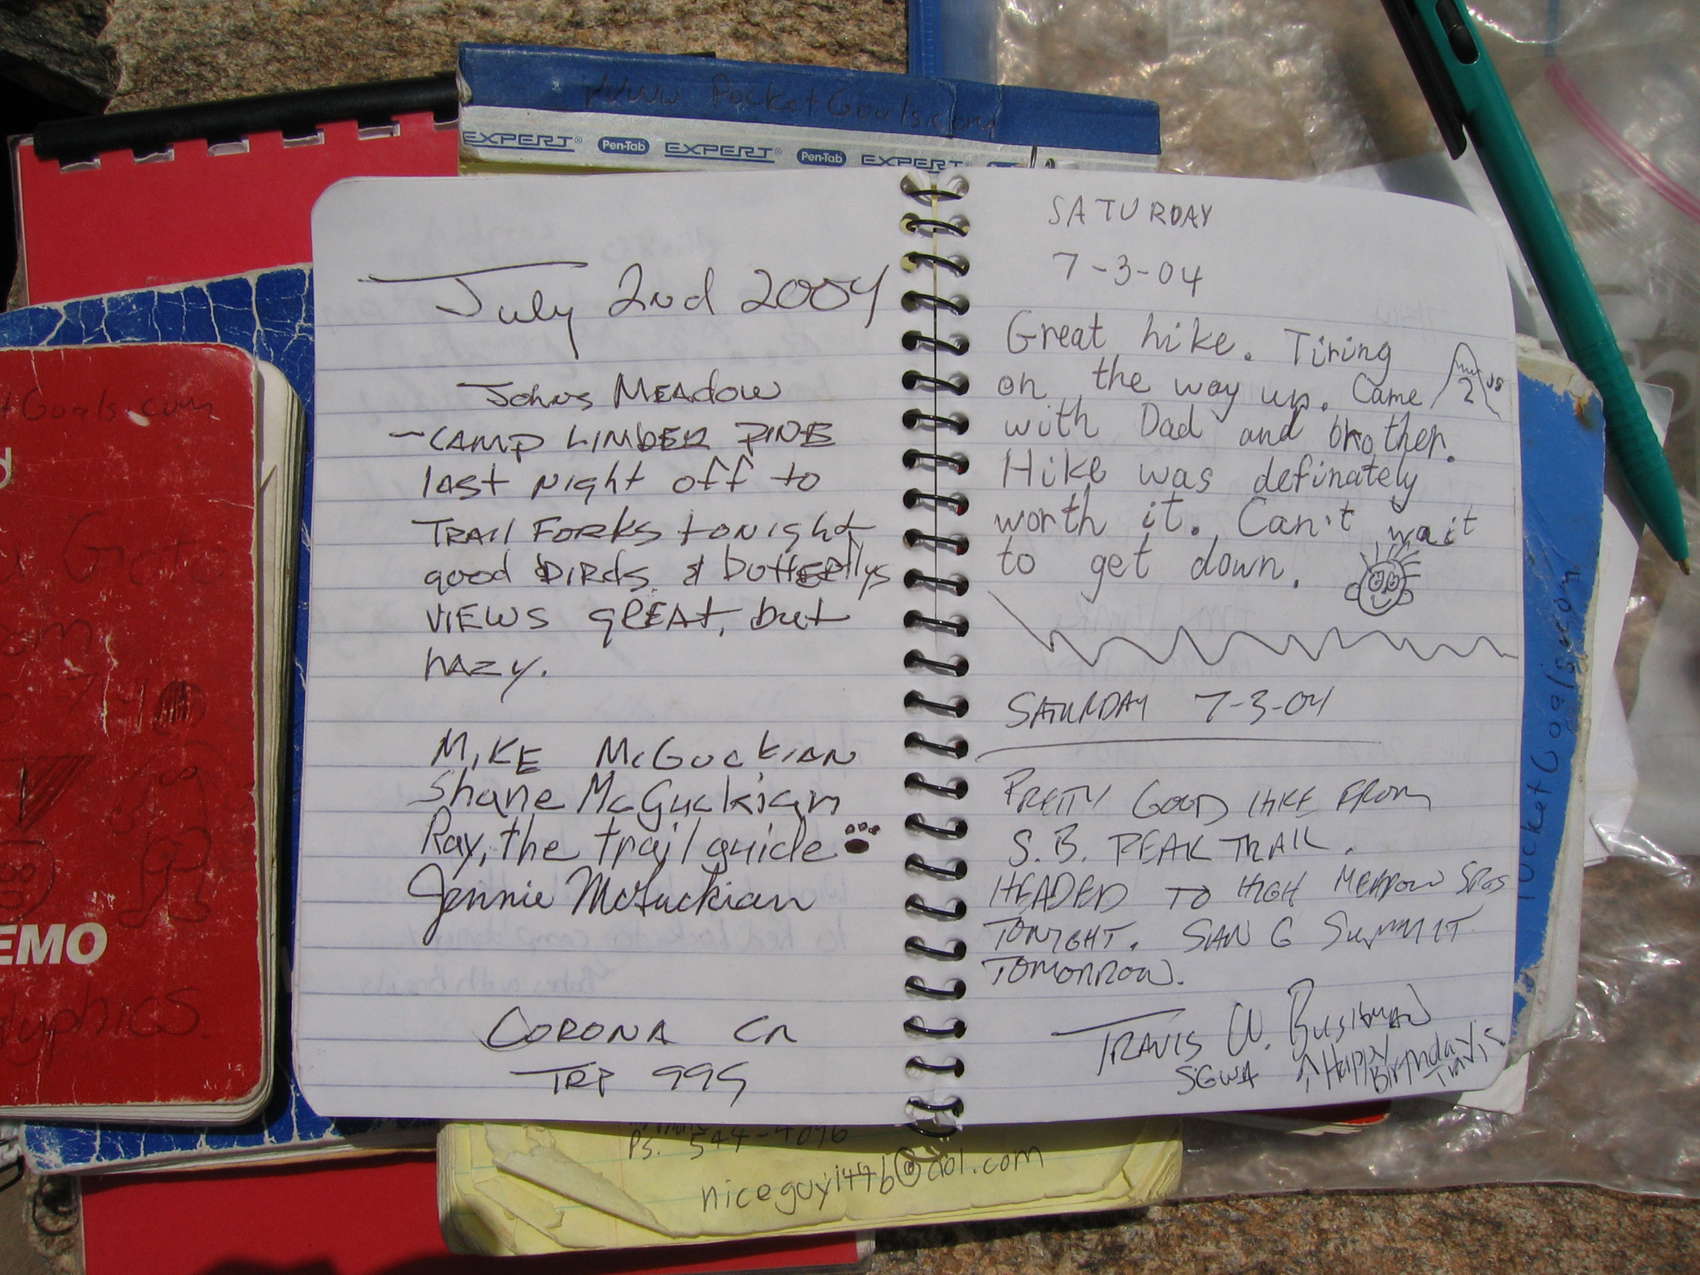 www.PocketGoals.com
EXPERT® Pen-Tab EXPERT® Pen-Tab EXPERT®
July 2nd 2004
Johns Meadow
- Camp Limber Pine
last night off to
Trail Forks tonight
good birds & butterflys
views great, but
hazy.
Mike McGuckian
Shane McGuckian
Ray, the trail guide
Jennie McGuckian
Corona Ca
TRP 995
SATURDAY
7-3-04
Great hike. Tiring
on the way up. Came
with Dad and brother.
Hike was definately
worth it. Can't wait
to get down.
2 us
SATURDAY 7-3-04
PRETTY GOOD HIKE FROM
S.B. PEAK TRAIL.
HEADED TO HIGH MEADOW SPGS
TONIGHT. SAN G SUMMIT
TOMORROW.
TRAVIS W. BUSHMAN
SGWA
Happy
Birthday
Travis
tGoals.com
d
EMO
PocketGoals.com
Ps. 544-4096
niceguy1446@aol.com